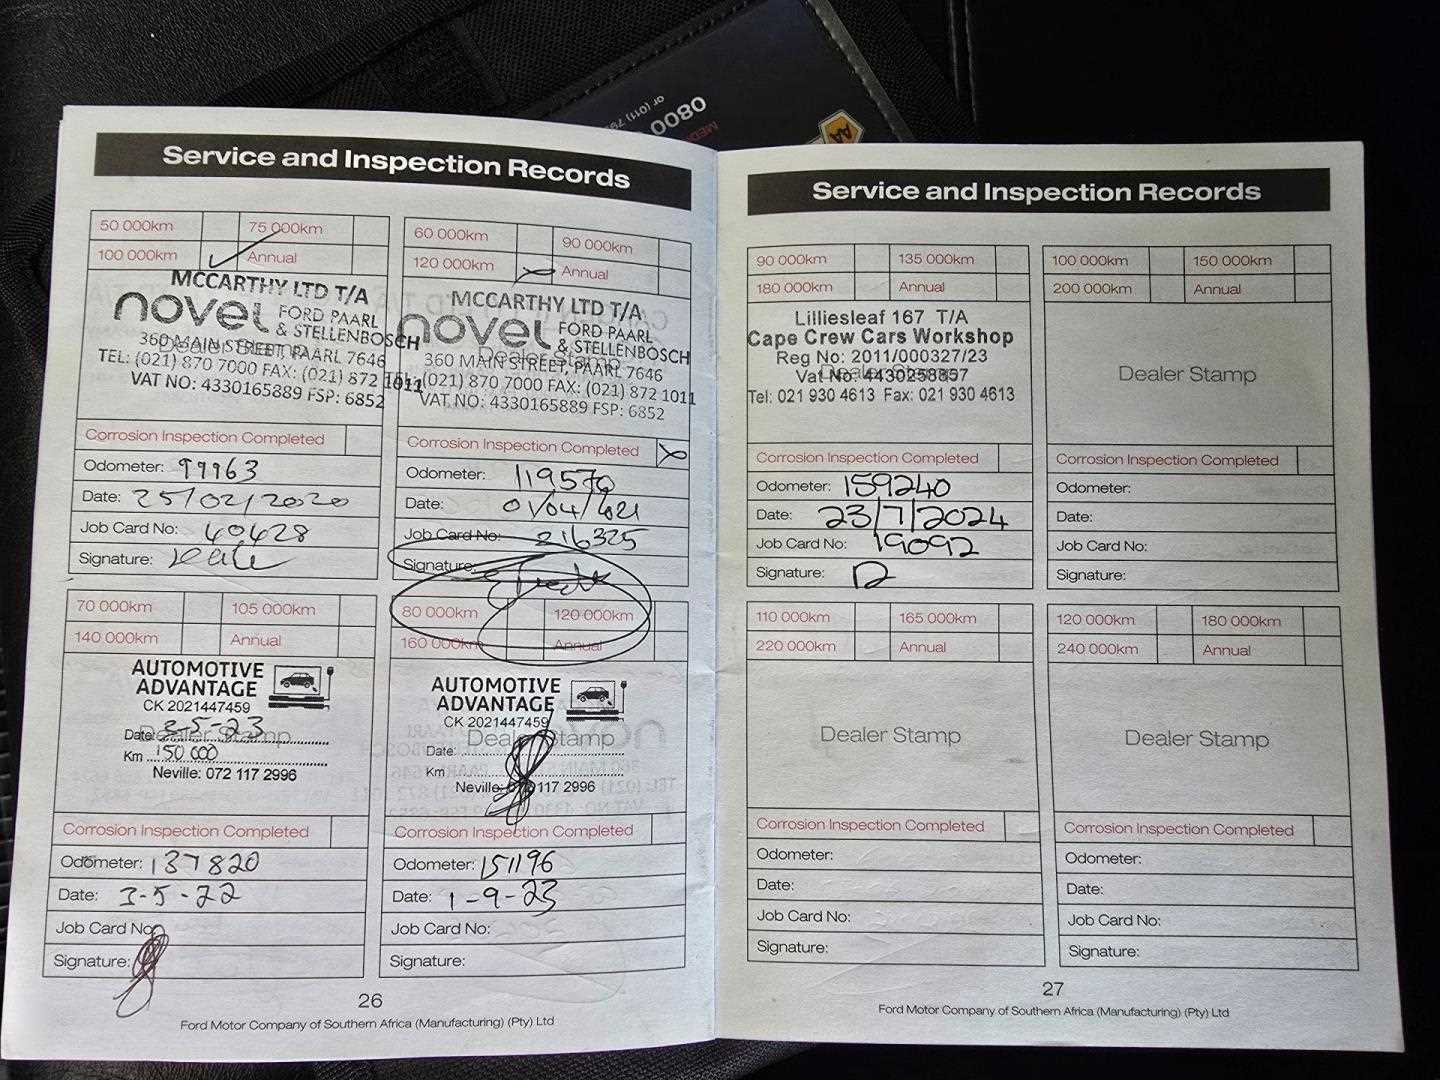 0800
or (011) 79
MED
AA
Service and Inspection Records
50 000km
75 000km
100 000km
Annual
MCCARTHY LTD T/A
novel FORD PAARL
& STELLENBOSCH
360 MAIN STREET, PAARL 7646
TEL: (021) 870 7000 FAX: (021) 872 1011
VAT NO: 4330165889 FSP: 6852
Corrosion Inspection Completed
Odometer: 99963
Date: 25/02/2020
Job Card No: 40428
Signature:
60 000km
90 000km
120 000km
Annual
MCCARTHY LTD T/A
novel FORD PAARL
& STELLENBOSCH
Dealer Stamp
360 MAIN STREET, PAARL 7646
TEL: (021) 870 7000 FAX: (021) 872 1011
VAT NO: 4330165889 FSP: 6852
Corrosion Inspection Completed
Odometer: 119570
Date: 01/04/2021
Job Card No: 216325
Signature:
70 000km
105 000km
140 000km
Annual
AUTOMOTIVE
ADVANTAGE
CK 2021447459
Dealer Stamp
Date 3-5-23
Km 150 000
Neville: 072 117 2996
Corrosion Inspection Completed
Odometer: 137820
Date: 3-5-22
Job Card No:
Signature:
80 000km
120 000km
160 000km
Annual
AUTOMOTIVE
ADVANTAGE
CK 2021447459
Dealer Stamp
Date:
Km
Neville: 072 117 2996
Corrosion Inspection Completed
Odometer: 151196
Date: 1-9-23
Job Card No:
Signature:
26
Ford Motor Company of Southern Africa (Manufacturing) (Pty) Ltd
Service and Inspection Records
90 000km
135 000km
180 000km
Annual
Lilliesleaf 167 T/A
Cape Crew Cars Workshop
Reg No: 2011/000327/23
Vat No: 4430258857
Tel: 021 930 4613 Fax: 021 930 4613
Corrosion Inspection Completed
Odometer: 159240
Date: 23/7/2024
Job Card No: 19092
Signature:
100 000km
150 000km
200 000km
Annual
Dealer Stamp
Corrosion Inspection Completed
Odometer:
Date:
Job Card No:
Signature:
110 000km
165 000km
220 000km
Annual
Dealer Stamp
Corrosion Inspection Completed
Odometer:
Date:
Job Card No:
Signature:
120 000km
180 000km
240 000km
Annual
Dealer Stamp
Corrosion Inspection Completed
Odometer:
Date:
Job Card No:
Signature:
27
Ford Motor Company of Southern Africa (Manufacturing) (Pty) Ltd